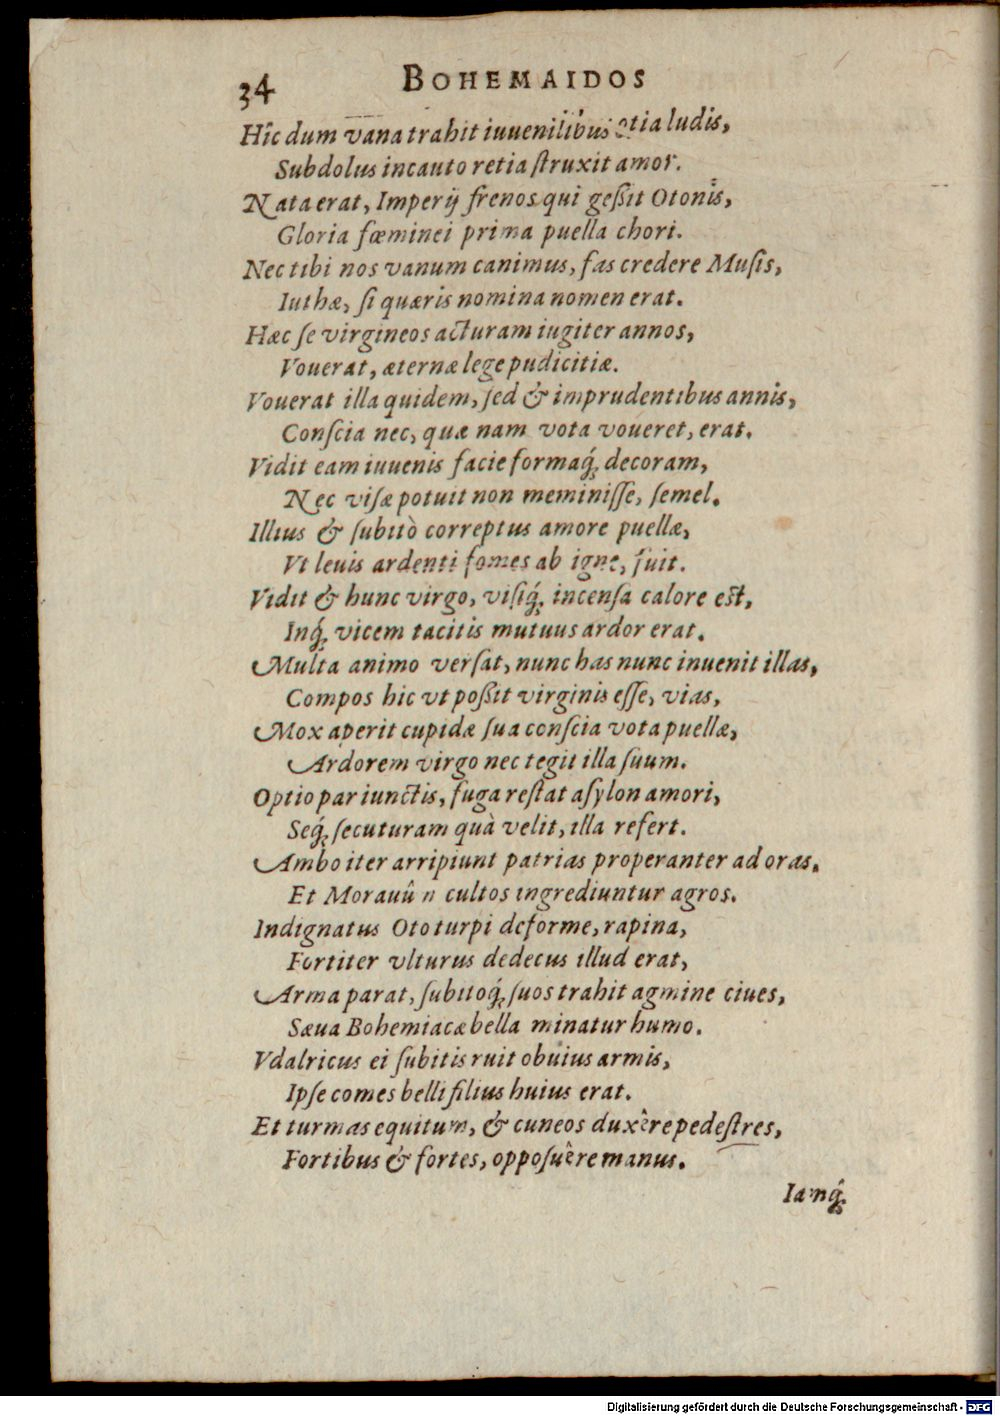 34 BOHEMAIDOS
Hîc dum vana trahit iuuenilibus otia ludis,
Subdolus incauto retia ſtruxit amor.
Nata erat, Imperij frenos qui geßit Otonis,
Gloria fœminei prima puella chori.
Nec tibi nos vanum canimus, fas credere Muſis,
Iuthæ, ſi quæris nomina nomen erat.
Hæc ſe virgineos acturam iugiter annos,
Vouerat, æternæ lege pudicitiæ.
Vouerat illa quidem, ſed & imprudentibus annis,
Conſcia nec, quæ nam vota voueret, erat.
Vidit eam iuuenis facie formaq́; decoram,
Nec viſæ potuit non meminiſſe, ſemel.
Illius & ſubitò correptus amore puellæ,
Vt leuis ardenti fomes ab igne, fuit.
Vidit & hunc virgo, viſiq́; incenſa calore eſt,
Inq́; vicem tacitis mutuus ardor erat.
Multa animo verſat, nunc has nunc inuenit illas,
Compos hic vt poßit virginis eſſe, vias,
Mox aperit cupidæ ſua conſcia vota puellæ,
Ardorem virgo nec tegit illa ſuum.
Optio par iunctis, fuga reſtat aſylon amori,
Seq́; ſecuturam quà velit, illa refert.
Ambo iter arripiunt patrias properanter ad oras.
Et Morauûn cultos ingrediuntur agros.
Indignatus Oto turpi deforme, rapina,
Fortiter vlturus dedecus illud erat,
Arma parat, ſubitoq́; ſuos trahit agmine ciues,
Sæua Bohemiacæ bella minatur humo.
Vdalricus ei ſubitis ruit obuius armis,
Ipſe comes belli filius huius erat.
Et turmas equitum, & cuneos duxêre pedeſtres,
Fortibus & fortes, oppoſuêre manus.
Iamq́;
Digitalisierung gefördert durch die Deutsche Forschungsgemeinschaft - DFG